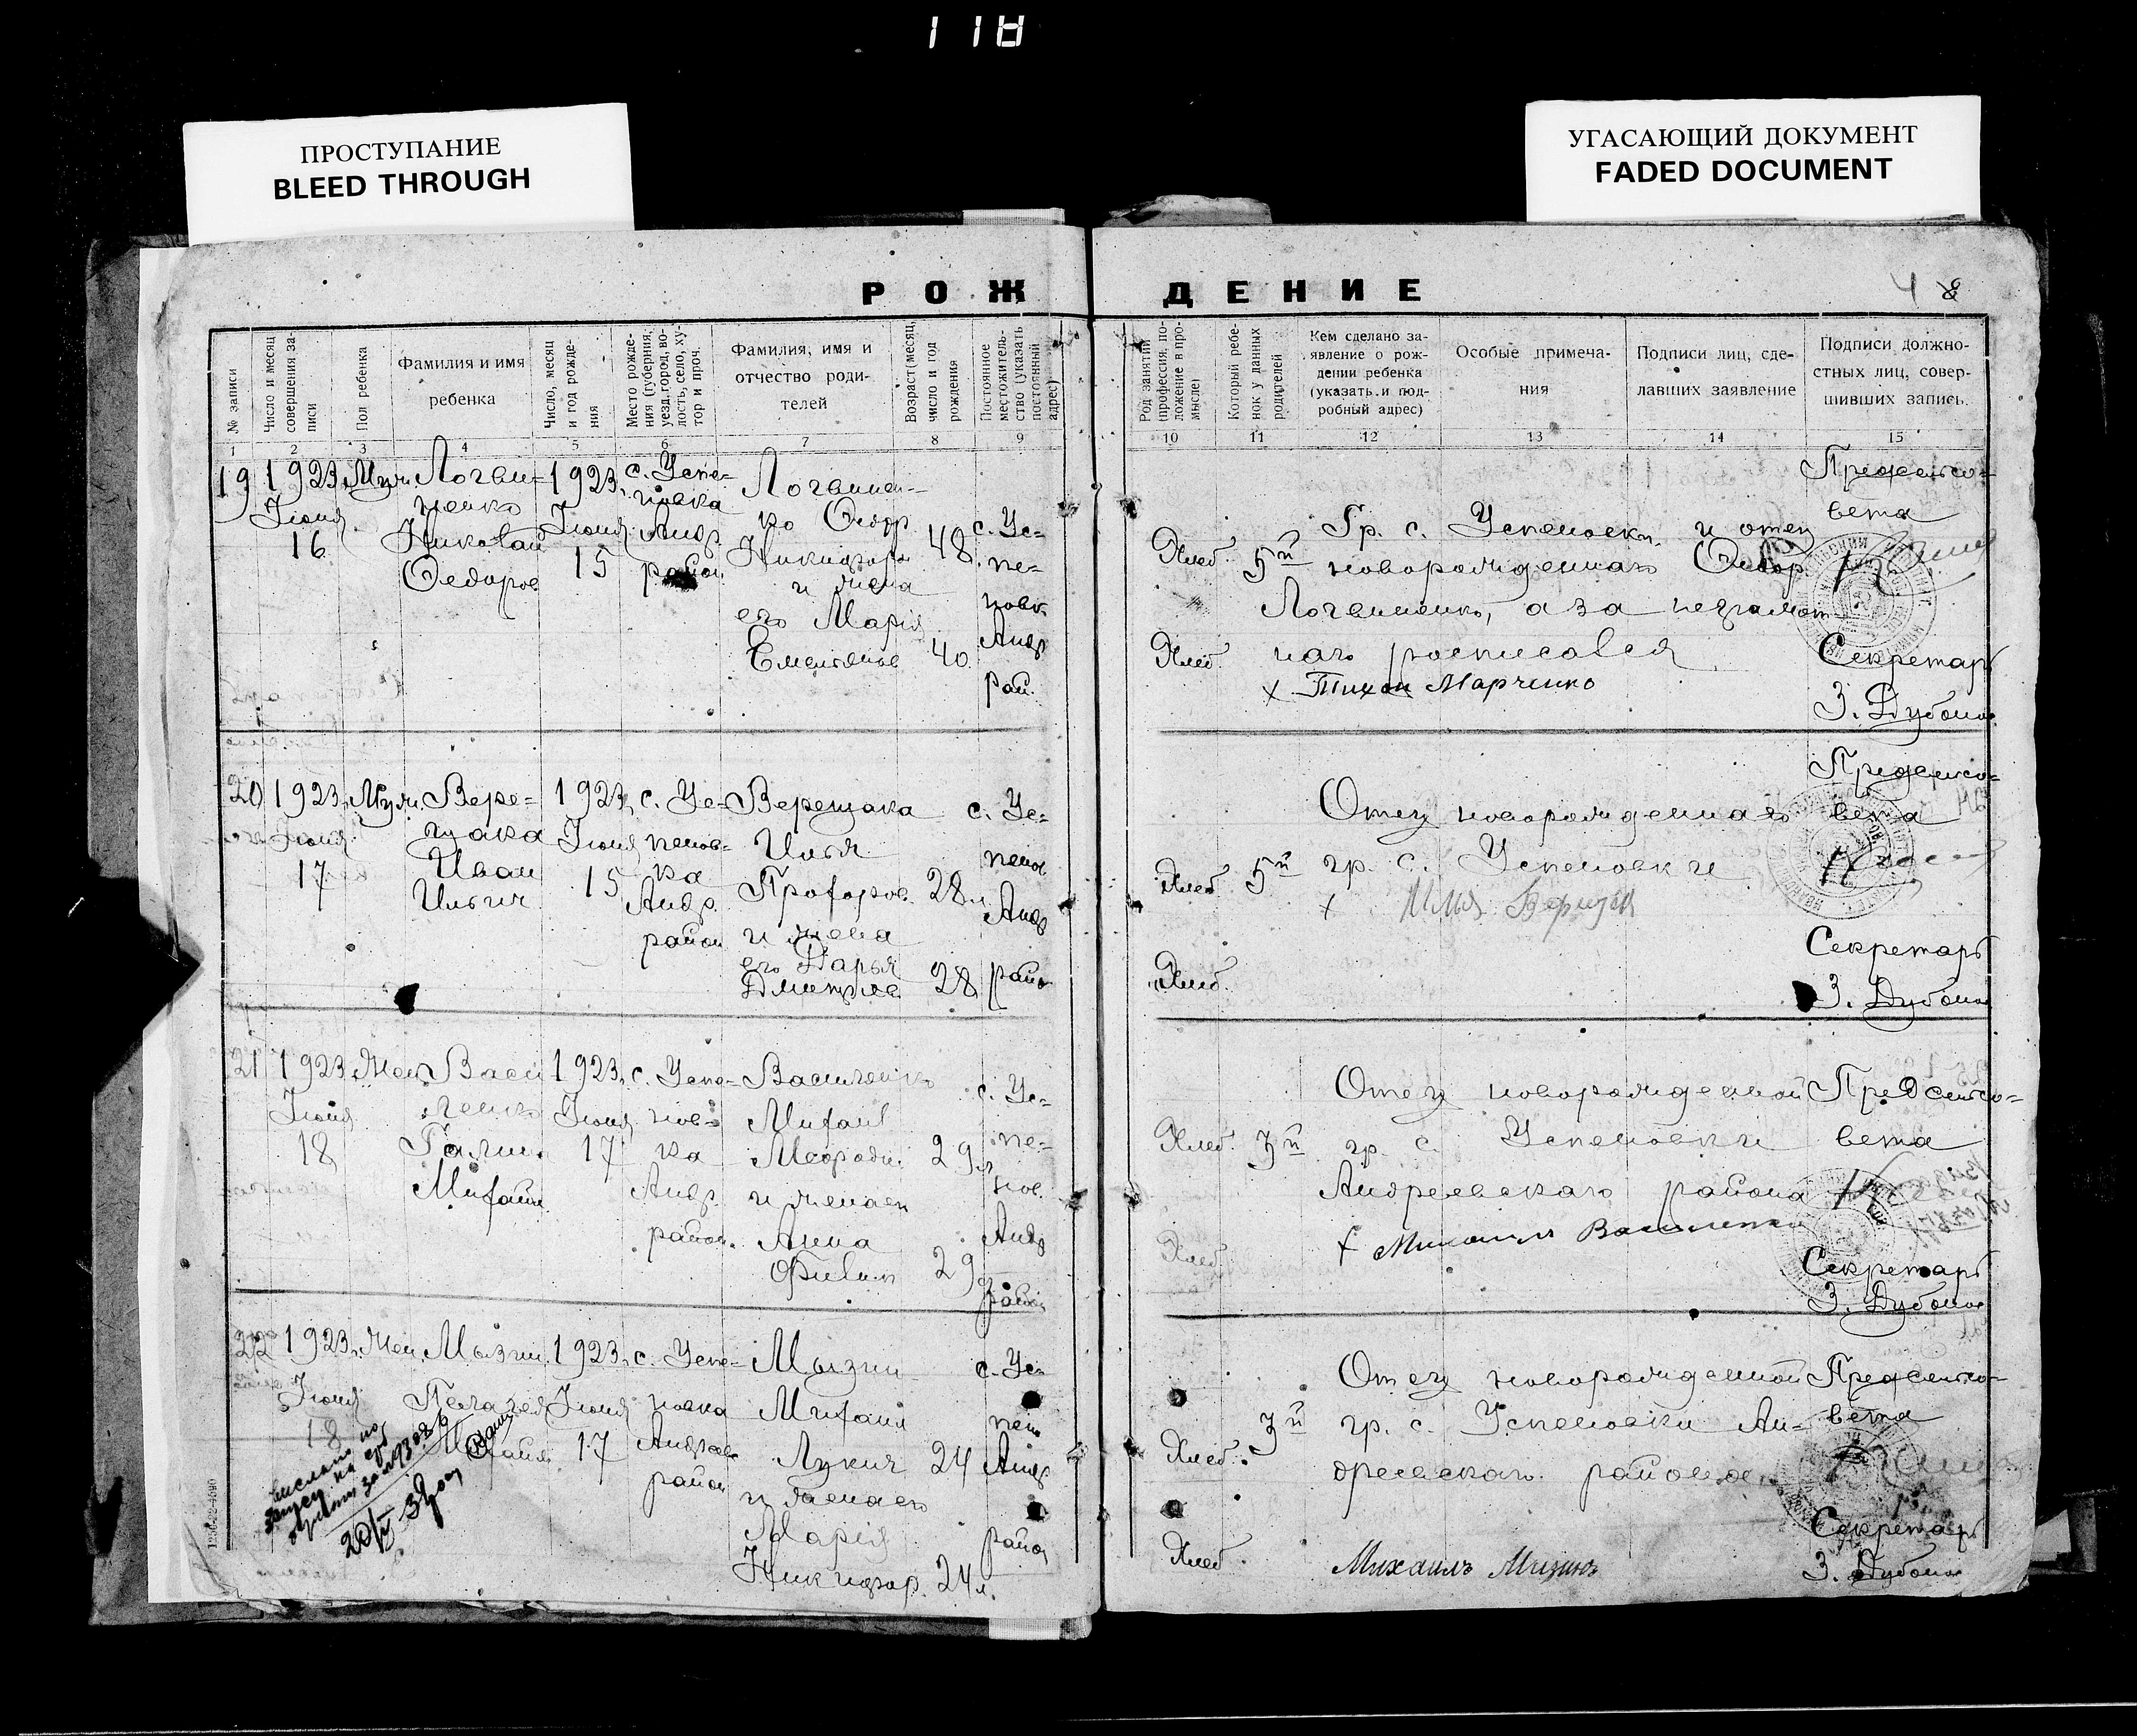 118
ПРОСТУПАНИЕ
BLEED THROUGH
УГАСАЮЩИЙ ДОКУМЕНТ
FADED DOCUMENT
РОЖДЕНИЕ
4
№ записи
Число и месяц совершения за-
писи
Пол ребенка
Фамилия и имя
ребенка
Число, месяц
и год рожде-
ния
Место рожде-
ния (губерния,
уезд, город, во-
лость, село, ху-
тор и проч.
Фамилия, имя и
отчество роди-
телей
Возраст (месяц,
число и год
рождения
Постоянное
местожитель-
ство (указать
постоянный
адрес)
Род занятий
(профессия, по-
ложение в про-
мысле)
Который ребе-
нок у данных
родителей
Кем сделано за-
явление о рож-
дении ребенка
(указать и под-
робный адрес)
Особые примеча-
ния
Подписи лиц, сде-
лавших заявление
Подписи должно-
стных лиц, совер-
шивших запись.
1 2 3 4 5 6 7 8 9 10 11 12 13 14 15
19
1923
Июня
16
Муж.
Логвин-
ненко
Николай
Федоров
1923
Июня
15
с. Успе-
новка
Андр.
район
Логвинен-
ко Федор
Никифоров
и жена
его Марія
Емельянов
48
40
с. Ус-
пе-
новк
Андр
рай.
Хлеб.
Хлеб.
5й
Гр. с. Успеновки и отец
новорожденнаго Федор
Логвиненко, а за неграмот
наго росписался
х Тихон Марченко
Предсельсо-
вета
Секретарь
З. Дубона
20
1923
Июня
17
Муж.
Вере-
щака
Иван
Ильич
1923
Июня
15
с. Ус-
пенов-
ка
Андр.
район
Верещака
Илья
Прохоров
и жена
его Дарья
Дмитрiев
28 л.
28
с. Ус-
пенов
Андр
райо
Хлеб
Хлеб.
5й
Отец новорожденнаго
гр. с. Успеновки
х Илья
Предсельсо-
вета
Секретарь
З. Дубона
21
1923
Июня
18
Жен
Васи
ленко
Галин
Михайл
1923
Июня
17
с. Успе-
нов-
ка
Андр.
район.
Василенко
Михаил
и жена его
Анна
29 л.
29
с. Ус-
пе-
нов.
Андр
район
Хлеб.
Хлеб
3й
Отец новорожденной
гр. с. Успеновки
Андреевскаго района
х Михаил Василенко
Предсельсо-
вета
Секретарь
З. Дубона
22
1923
Июня
18
Жен.
Мызин
Пелагея
Михайл
1923
Июня
17
с. Успе-
новка
Андреев
район
Мызин
Михаил
Лукич
и жена его
Марія
Никифор.
24
24 л.
с. Ус-
пен
Андр
район
Хлеб.
Хлеб.
3й
Отец новорожденной
гр. с. Успеновки Ан-
дреевскаго района
Михаилъ Мизинъ
Предсельсо-
вета
Секретарь
З. Дубона